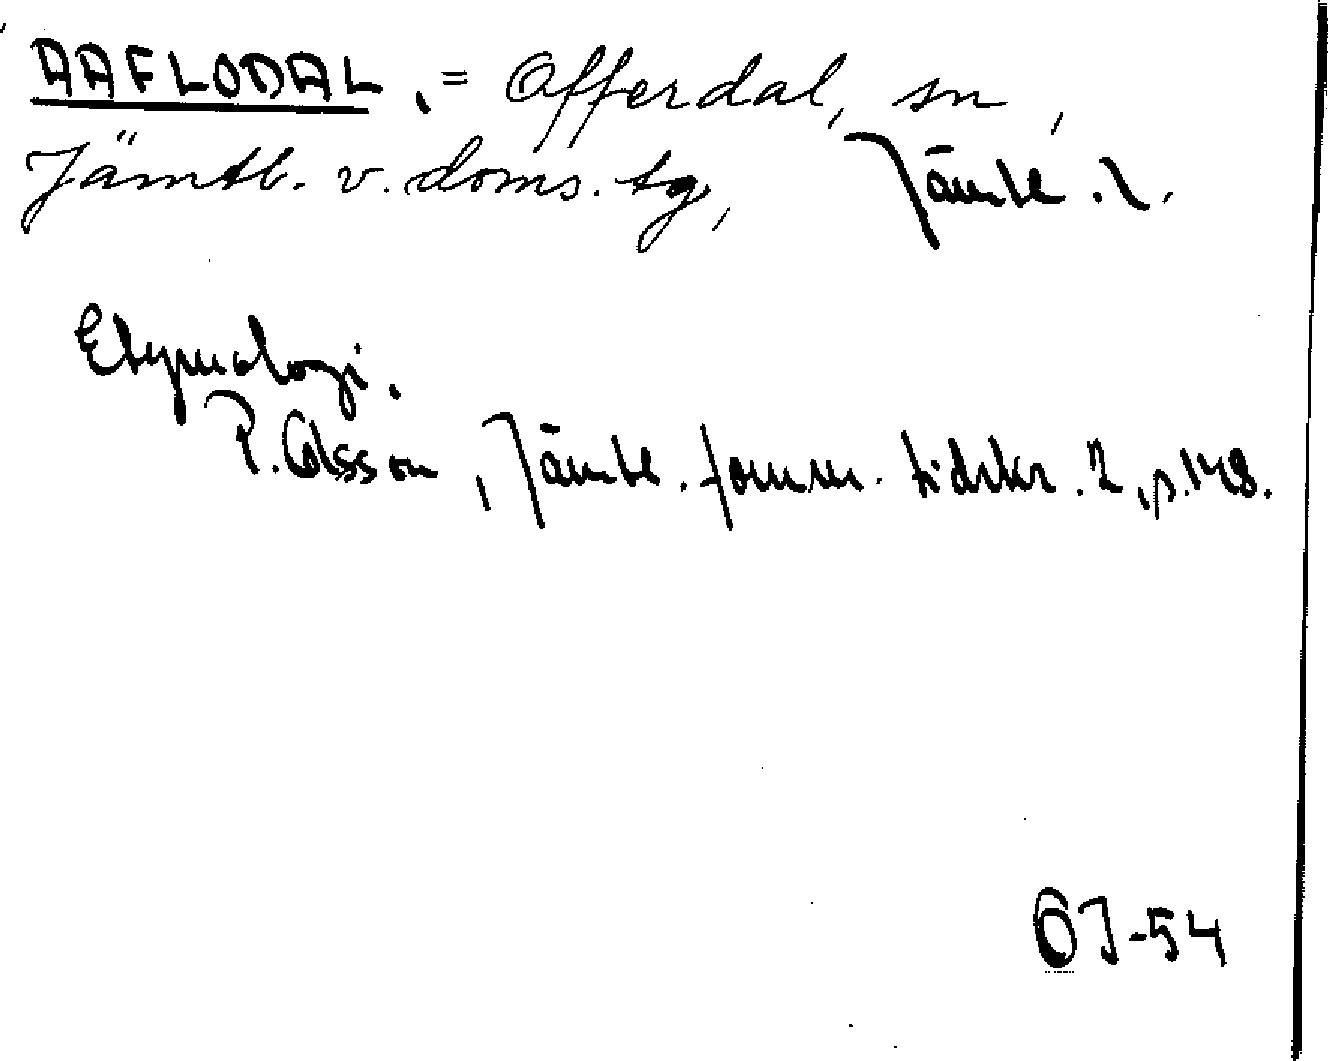 AAFLODAL, = Offerdal, sn,
Jämtl. v. doms. tg, Jämtl. l.
Etymologi.
P. Olsson, Jämtl. fornm. tidskr. 2, p. 148.
OJ-54